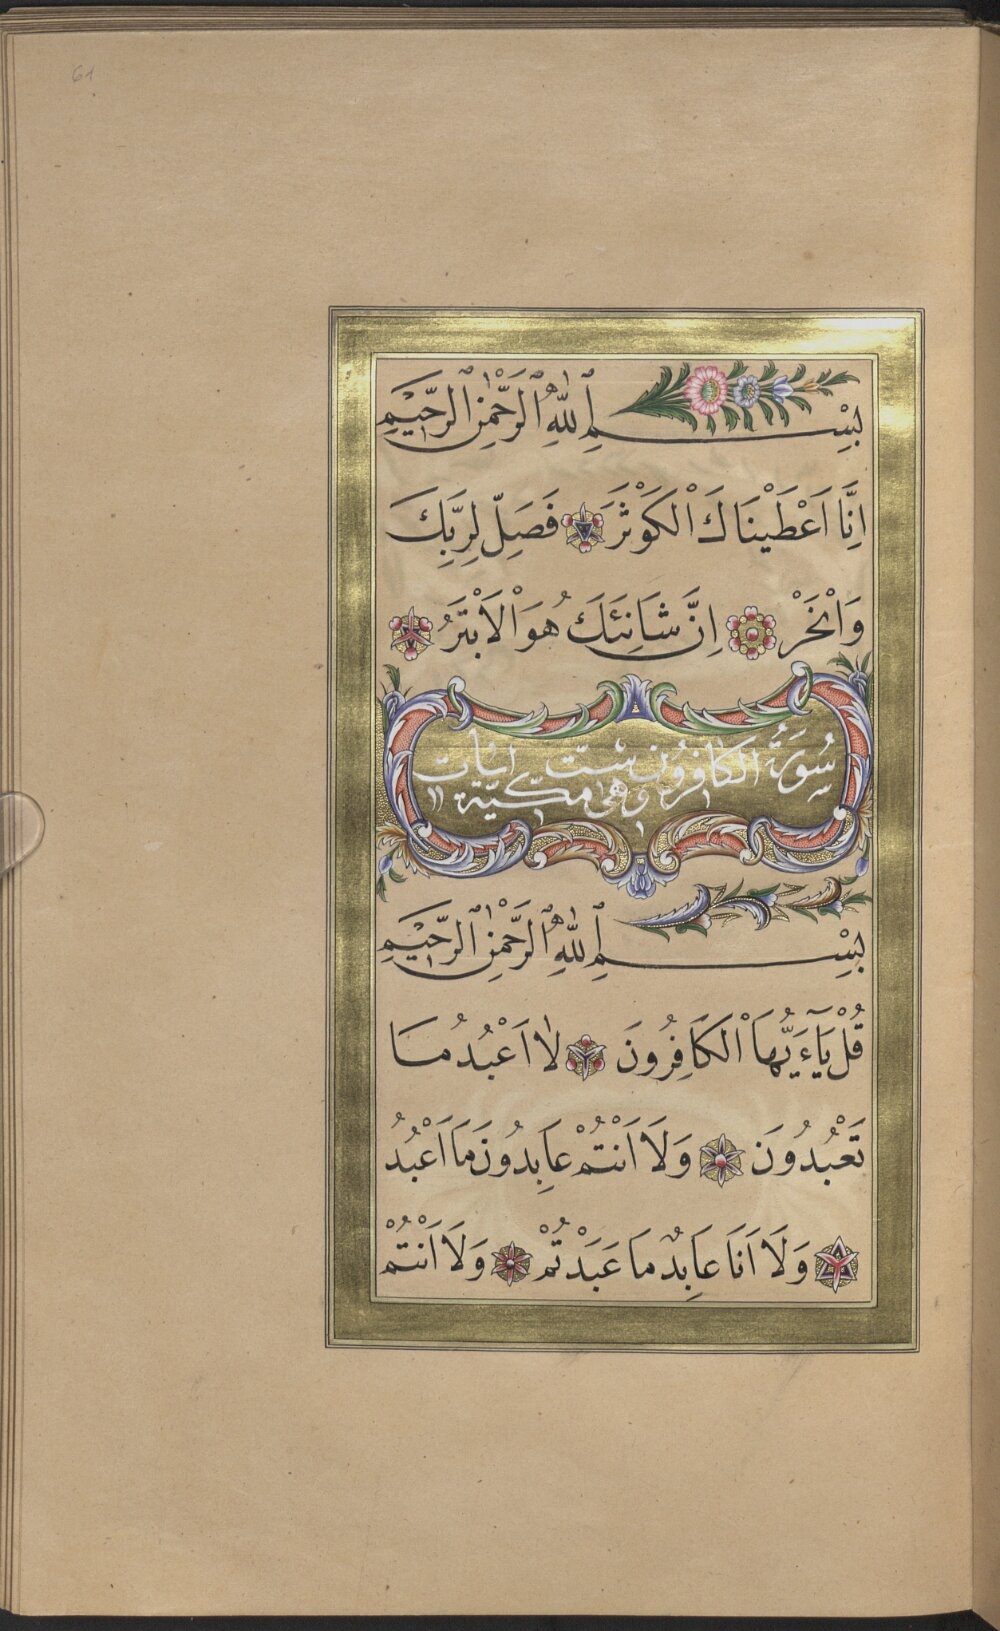 61
بِسْمِ اللّٰهِ الرَّحْمٰنِ الرَّحِيْمِ
اِنَّا اَعْطَيْنَاكَ الْكَوْثَرَ فَصَلِّ لِرَبِّكَ
وَانْحَرْ اِنَّ شَانِئَكَ هُوَ الْاَبْتَرُ
سُورَةُ الكَافِرُونَ سِتّ اٰيَات
وَهِيَ مَكِّيَّة
بِسْمِ اللّٰهِ الرَّحْمٰنِ الرَّحِيْمِ
قُلْ يَآءَيُّهَا الْكَافِرُونَ لَا اَعْبُدُ مَا
تَعْبُدُونَ وَلَا اَنْتُمْ عَابِدُونَ مَا اَعْبُدُ
وَلَا اَنَا عَابِدٌ مَا عَبَدْتُمْ وَلَا اَنْتُمْ